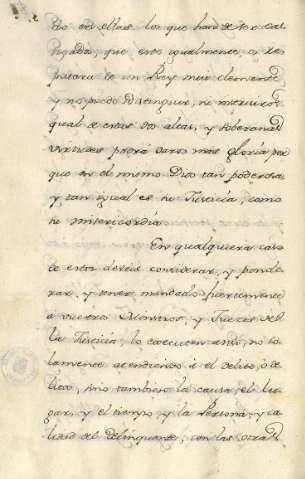 en ellas los que han de ser cas
tigados; que esto igualmente, o se
de un Rey mui clemente
y no puedo distinguir, ni
qual de estas dos altas, y soberanas
virtudes podrá daros mas gloria por
que en el mismo Dios tan poderosa
y tan igual es su Justicia, como
su misericordia
En qualquiera caso
de estos debeis considerar, y ponde
rar, y tener mandado
a vuestros Ministros, y Jueces de
la Justicia, lo executen assi, no so
lamente atendiendo à el delito, o de
lito, sino tambien la causa, el lu
gar, y el tiempo, y la Persona, y ca
lidad del delinquente, con las otras